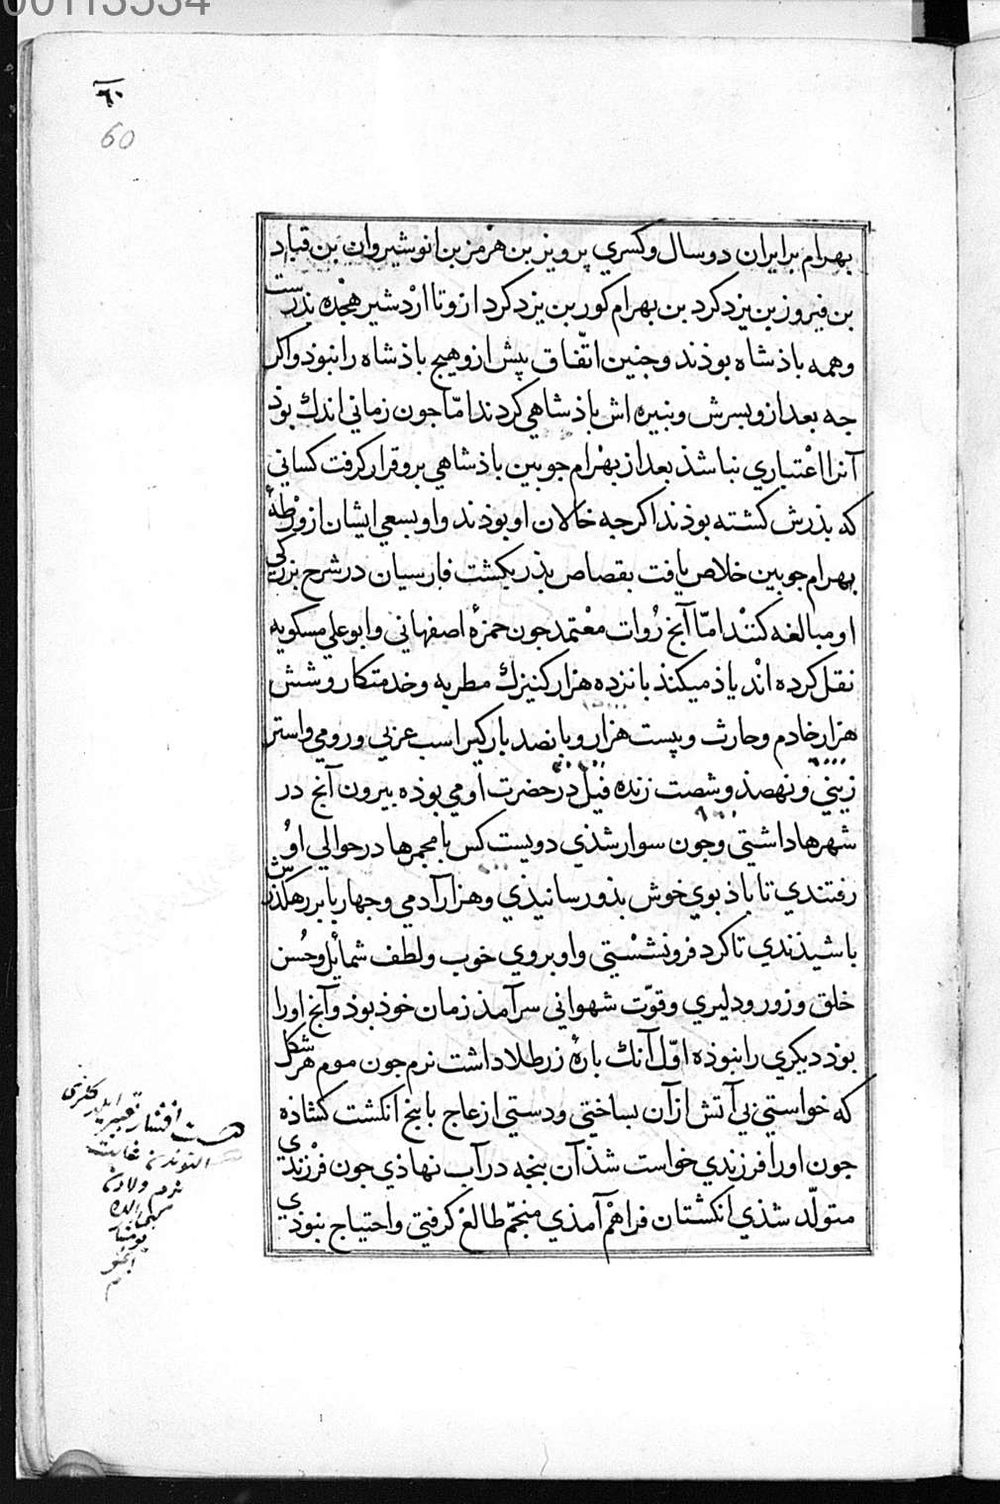 00113534
٦٠
60
بهرام بر ایران دو سال و کسري پرویز بن هرمز بن انوشیروان بن قباد
بن فیروز بن یزد کرد بن بهرام کور بن یزد کرد ازو تا اردشیر هجده بذرست
وهمه باذشاه بوذند و جنین اتّفاق پیش ازو هیج باذشاه را نبوذ واکر
جه بعد ازو بسرش و نبیره اش باذشاهي کردند امّا جون زماني اندك بوذ
آنرا اعْتباري نباشذ بعد از بهْرام جوبین باذشاهي برو قرار کرفت کساني
که بذرش کشته بوذند اکرجه خالان او بوذند و او بسعي ایشان از ورْطهٔ
بهرام جوبین خلاص یافت بقصاص بذر بکشت فارسیان در شرح بزرکي
او مبالغه کنند امّا آنج رُوات معْتمد جون حمزهٔ اصفهاني و ابو علي مسکویه
نقل کرده اند یاذ میکنذ بانزده هزار کنیزك مطربه وخدمتکار وشش
هزار خادم وحارث وبیست هزار و بانصد بارکیر اسب عربي ورومي واستر
زیني ونهصذ وشصت زنده فیل در حضرت او مي بوذه بیرون آنج در
شهرها داشتي وجون سوار شذي دویست کس با مجمرها در حوالي او
رفتندي تا باذ بوي خوش بذو رسانیذي وهزار آدمي وجهاربا بر رهکذرش
باشیذندي تا کرد فرونشسْتي واو بروي خوب و لطف شمائل وحُسن
خلق و زور و دلیري وقوّت شهواني سرآمذ زمان خوذ بوذ وآنج اورا
بوذ دیکري را نبوذه اوّل آنك بارهٔ زر طلا داشت نرم جون موم هر شکل
که خواستي بي آتش ازآن بساختي ودستي از عاج با بنج انکشت کشاذه
جون اورا فرزندي خواست شذ آن بنجه در آب نهاذي جون فرزندي
متولّد شذي انکشتان فراهْم آمذي منجّم طالعْ کرفتي واحتیاج نبوذي